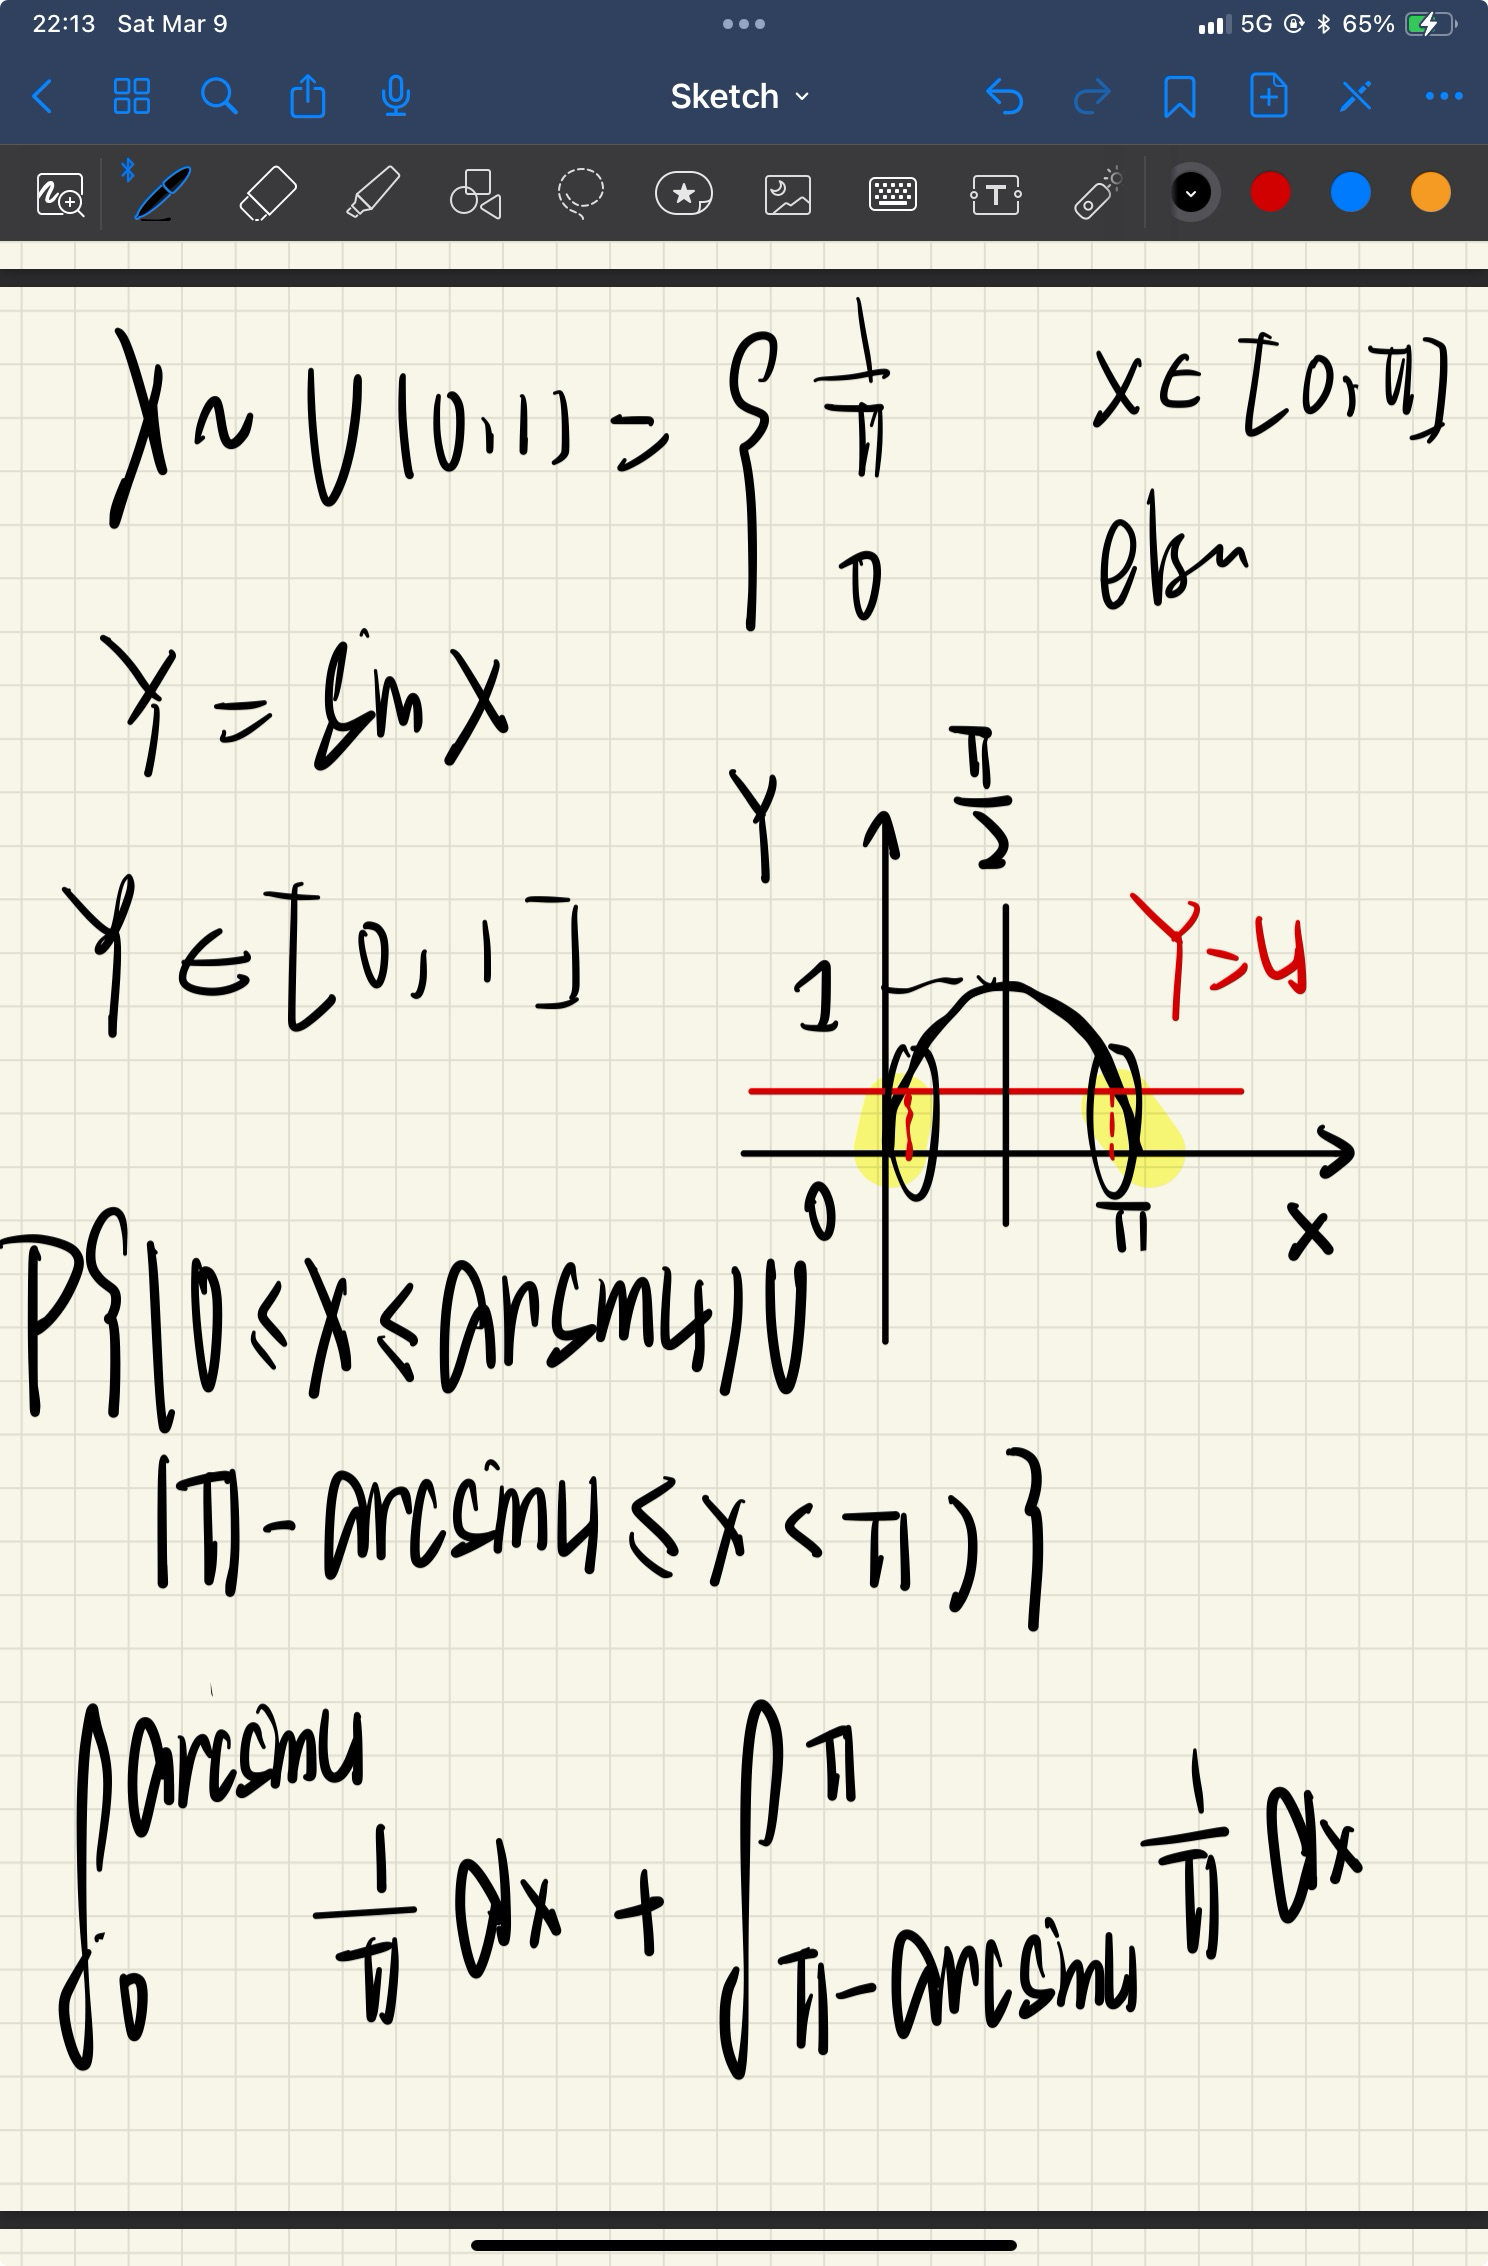 22:13 Sat Mar 9 5G 65%
Sketch
X ~ U(0,1) = { 1/π x ∈ [0,π]
0 else
Y = sin X
Y ∈ [0,1]
Y π/2
Y=y
1
0 π x
P{(0 ≤ X ≤ arcsiny) ∪
(π - arcsiny ≤ x < π)}
∫₀^arcsiny 1/π dx + ∫_π-arcsiny^π 1/π dx